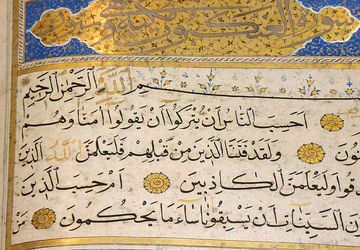 سورة العنكبوت
بسم الله الرحمن الرحيم
احسب الناس ان يتركوا ان يقولوا امنا وهم
ون ولقد فتنا الذين من قبلهم فليعلمن الله الذين
قوا وليعلمن الكاذبين ام حسب الذين
ن السيئات ان يسبقونا ساء ما يحكمون من